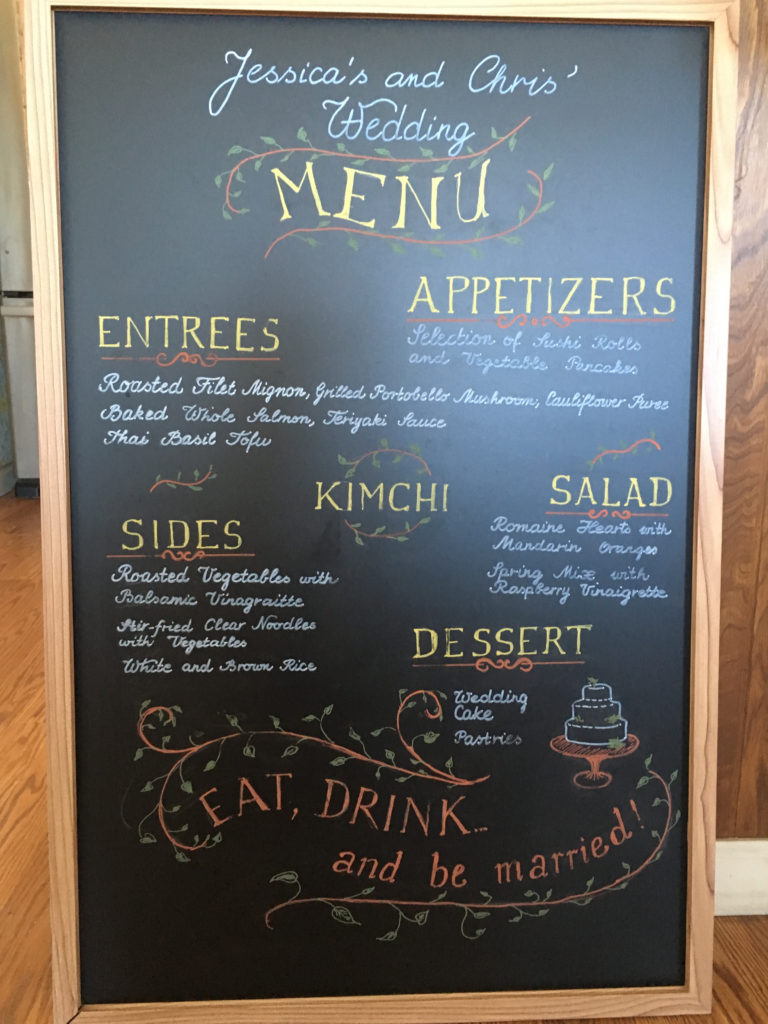 Jessica's and Chris'
Wedding
MENU
APPETIZERS
Selection of Sushi Rolls
and Vegetable Pancakes
ENTREES
Roasted Filet Mignon, Grilled Portobello Mushroom, Cauliflower Puree
Baked Whole Salmon, Teriyaki Sauce
Thai Basil Tofu
KIMCHI
SALAD
Romaine Hearts with
Mandarin Oranges
Spring Mix with
Raspberry Vinaigrette
SIDES
Roasted Vegetables with
Balsamic Vinagraitte
Stir-fried Clear Noodles
with Vegetables
White and Brown Rice
DESSERT
Wedding
Cake
Pastries
EAT, DRINK...
and be married!